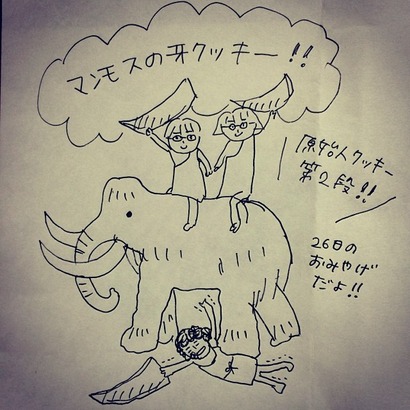 マンモスの牙クッキー!!
原始人クッキー
第2段!!
26日の
おみやげ
だよ!!